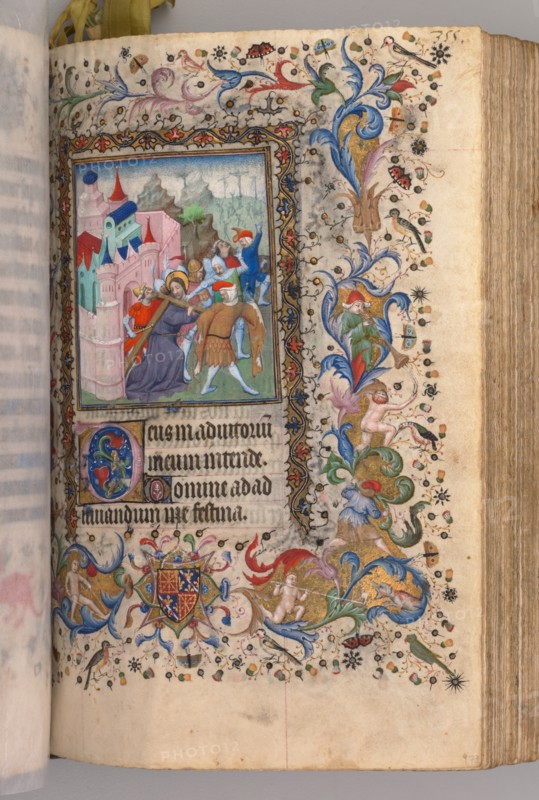 Deus in adiutoriū
meum intende.
Domine ad ad
iuuandum me festina.
PHOTO12